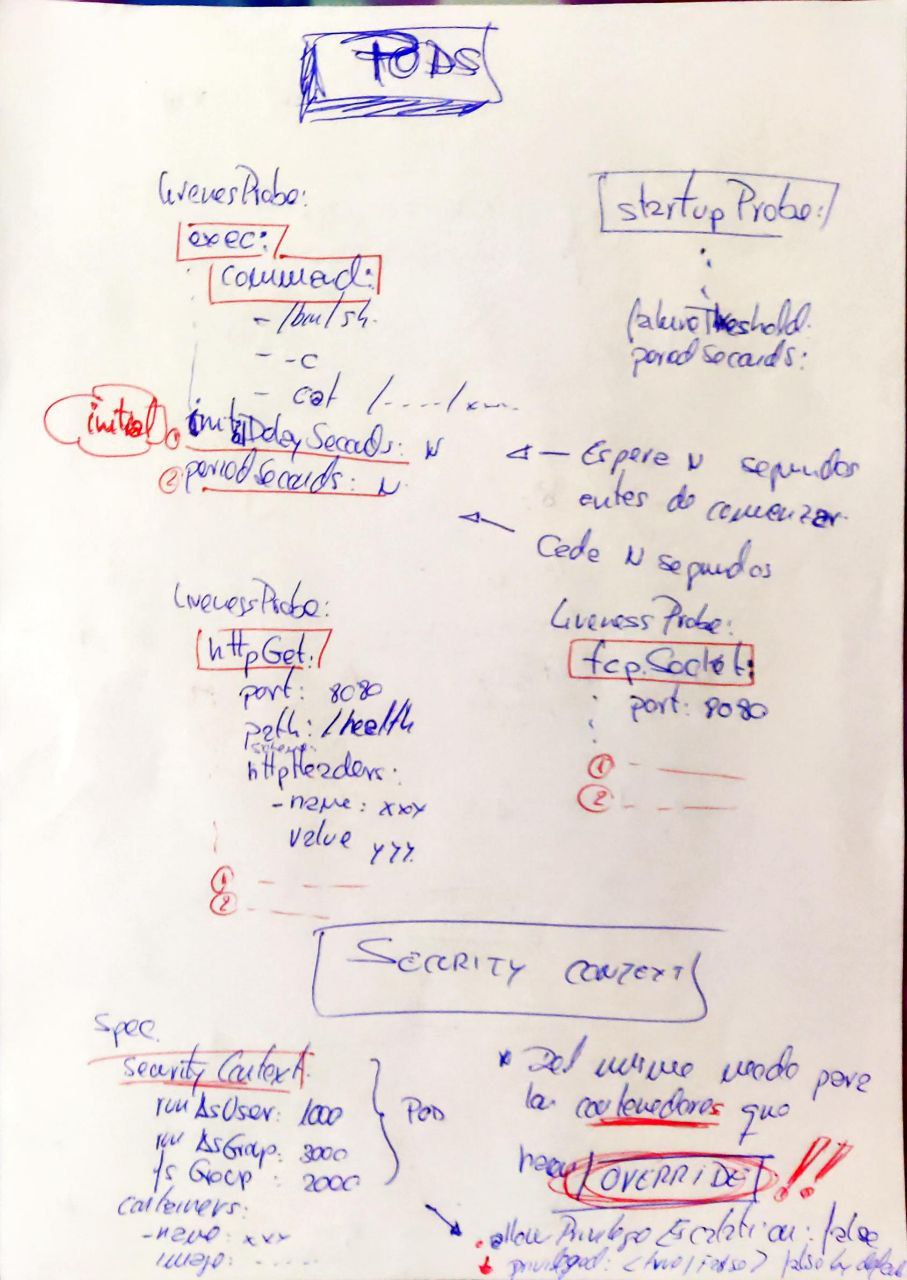 PODS
livenesProbe:
exec:
command:
- /bin/sh
- -c
- cat /..../xm...
initial
① initialDelaySeconds: N
② periodSeconds: N
startupProbe:
failureThreshold
periodSeconds:
← Espere N segundos
antes de comenzar
Cada N segundos
livenessProbe:
httpGet:
port: 8080
path: /health
scheme:
httpHeaders:
- name: xxx
value yyy
① - ——
② - ——
livenessProbe:
tcpSocket:
port: 8080
① - ——
② - - ——
SECURITY CONTEXT
Spec
securityContext:
runAsUser: 1000
runAsGroup: 3000
fsGroup: 2000
POD
containers:
- name: xxx
image: .....
* Del mismo modo para
los contenedores que
hacen OVERRIDE !!
allowPrivilegeEscalation: false
privileged: <true|false> false by default